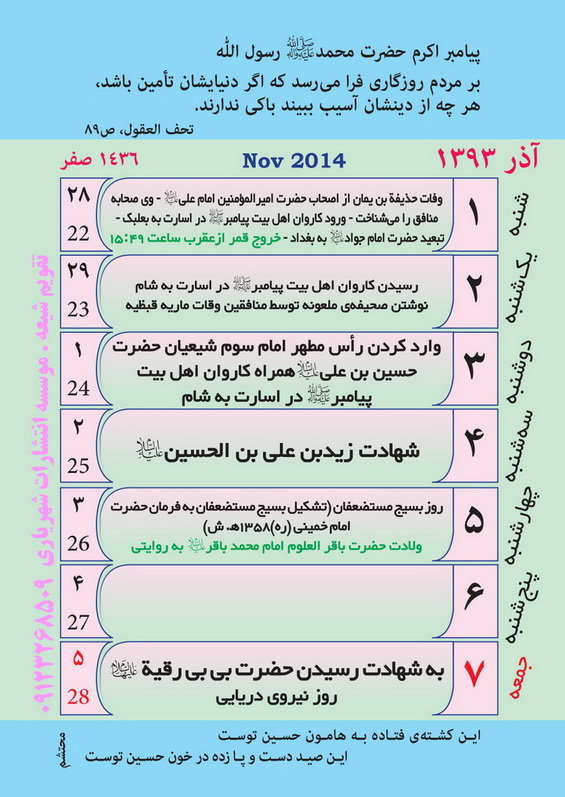 پیامبر اکرم حضرت محمدﷺ رسول الله
بر مردم روزگاری فرا می‌رسد که اگر دنیایشان تأمین باشد،
هر چه از دینشان آسیب ببیند باکی ندارند.
تحف العقول، ص۸۹
آذر ۱۳۹۳
Nov 2014
۱۴۳۶ صفر
شنبه
۱
وفات حذیفة بن یمان از اصحاب حضرت امیرالمؤمنین امام علی علیه‌السلام - وی صحابه
منافق را می‌شناخت - ورود کاروان اهل بیت پیامبرﷺ در اسارت به بعلبک -
تبعید حضرت امام جواد علیه‌السلام به بغداد - خروج قمر ازعقرب ساعت ۱۵:۴۹
۲۸
22
یک‌شنبه
۲
رسیدن کاروان اهل بیت پیامبرﷺ در اسارت به شام
نوشتن صحیفه‌ی ملعونه توسط منافقین وفات ماریه قبطیه
۲۹
23
دوشنبه
۳
وارد کردن رأس مطهر امام سوم شیعیان حضرت
حسین بن علی علیه‌السلام همراه کاروان اهل بیت
پیامبرﷺ در اسارت به شام
۱
24
سه‌شنبه
۴
شهادت زیدبن علی بن الحسین علیه‌السلام
۲
25
چهارشنبه
۵
روز بسیج مستضعفان (تشکیل بسیج مستضعفان به فرمان حضرت
امام خمینی (ره)۱۳۵۸ه‍. ش)
ولادت حضرت باقر العلوم امام محمد باقر علیه‌السلام به روایتی
۳
26
پنج‌شنبه
۶
۴
27
جمعه
۷
به شهادت رسیدن حضرت بی بی رقیة علیهاالسلام
روز نیروی دریایی
۵
28
تقویم شیعه . موسسه انتشارات شهریاری ۰۹۱۲۳۲۶۸۵۰۹
این کشته‌ی فتاده به هامون حسین توست
این صید دست و پا زده در خون حسین توست
محتشم